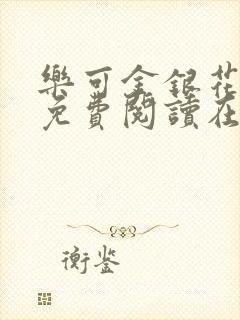 樂可金銀花
免費閱讀在
衡鉴